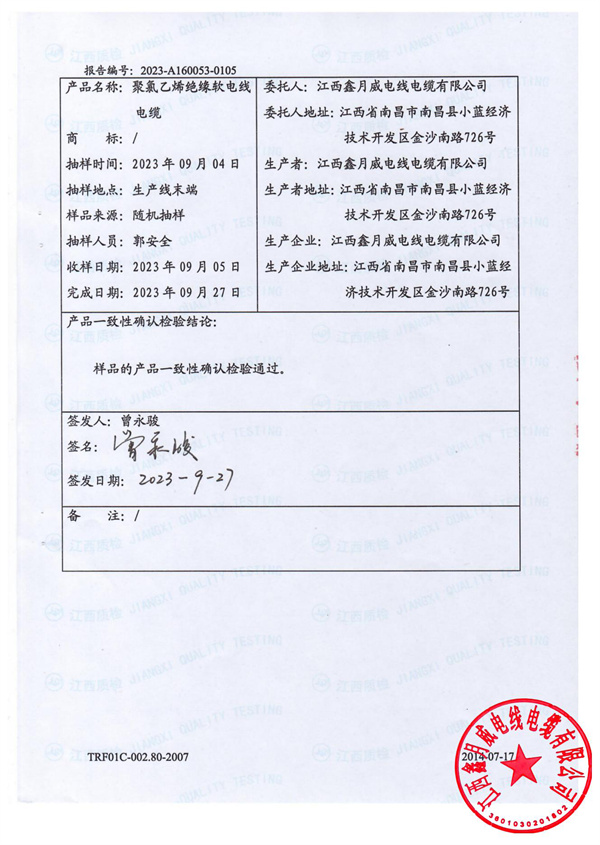 报告编号：2023-A160053-0105
产品名称：聚氯乙烯绝缘软电线
电缆
商　　标：/
抽样时间：2023 年 09 月 04 日
抽样地点：生产线末端
样品来源：随机抽样
抽样人员：郭安全
收样日期：2023 年 09 月 05 日
完成日期：2023 年 09 月 27 日
委托人：江西鑫月威电线电缆有限公司
委托人地址：江西省南昌市南昌县小蓝经济
技术开发区金沙南路726号
生产者：江西鑫月威电线电缆有限公司
生产者地址：江西省南昌市南昌县小蓝经济
技术开发区金沙南路726号
生产企业：江西鑫月威电线电缆有限公司
生产企业地址：江西省南昌市南昌县小蓝经
济技术开发区金沙南路726号
产品一致性确认检验结论：
样品的产品一致性确认检验通过。
签发人：曾永骏
签名：曾永骏
签发日期：2023-9-27
备　　注：/
TRF01C-002.80-2007
2014-07-17
江西鑫月威电线电缆有限公司
3601030201802
江西质检 JIANGXI QUALITY TESTING